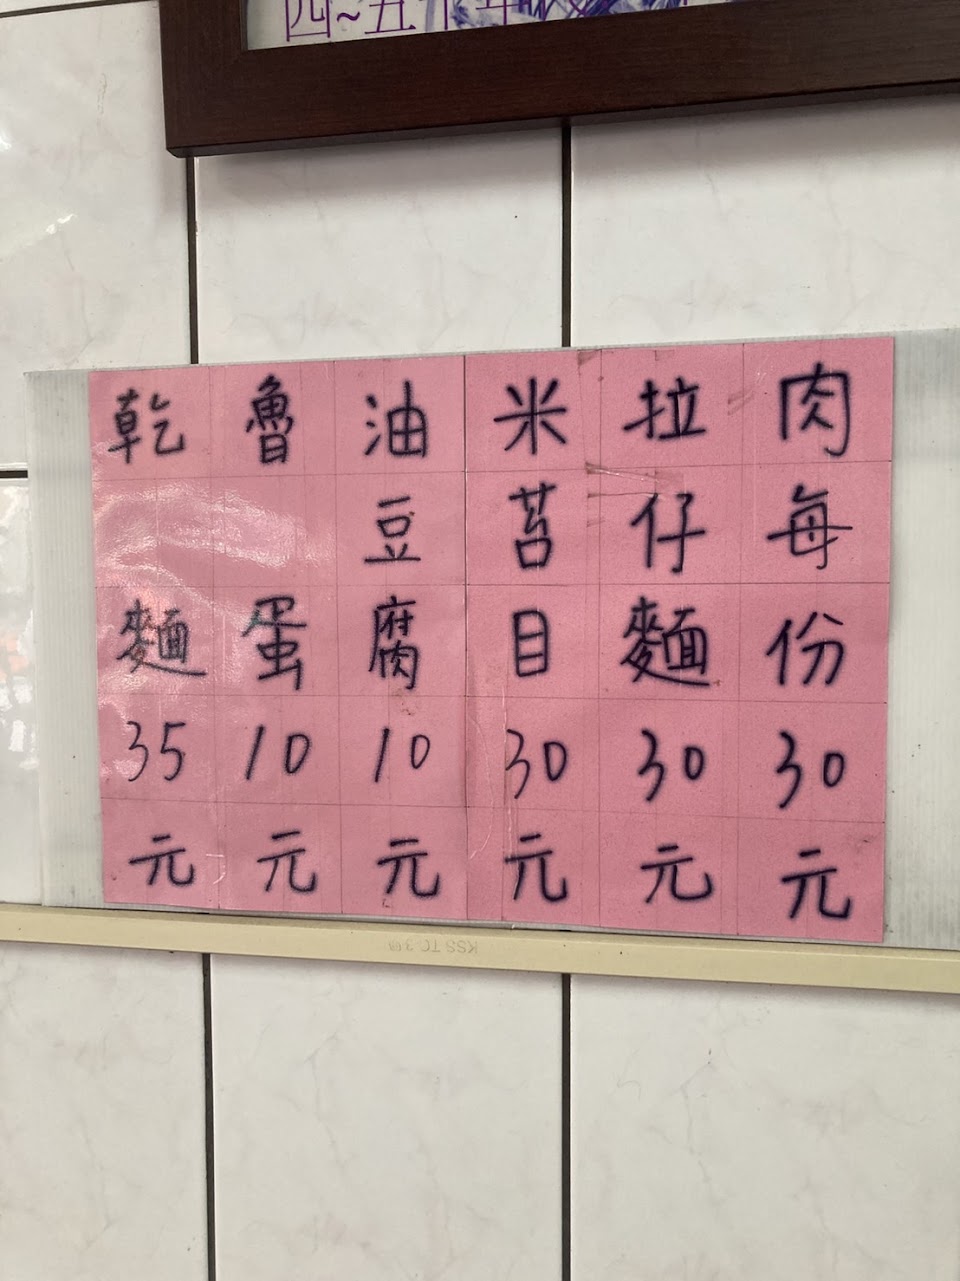 四~五十年
肉每份30元
拉仔麵30元
米苔目30元
油豆腐10元
魯蛋10元
乾麵35元
KSS TC 3號